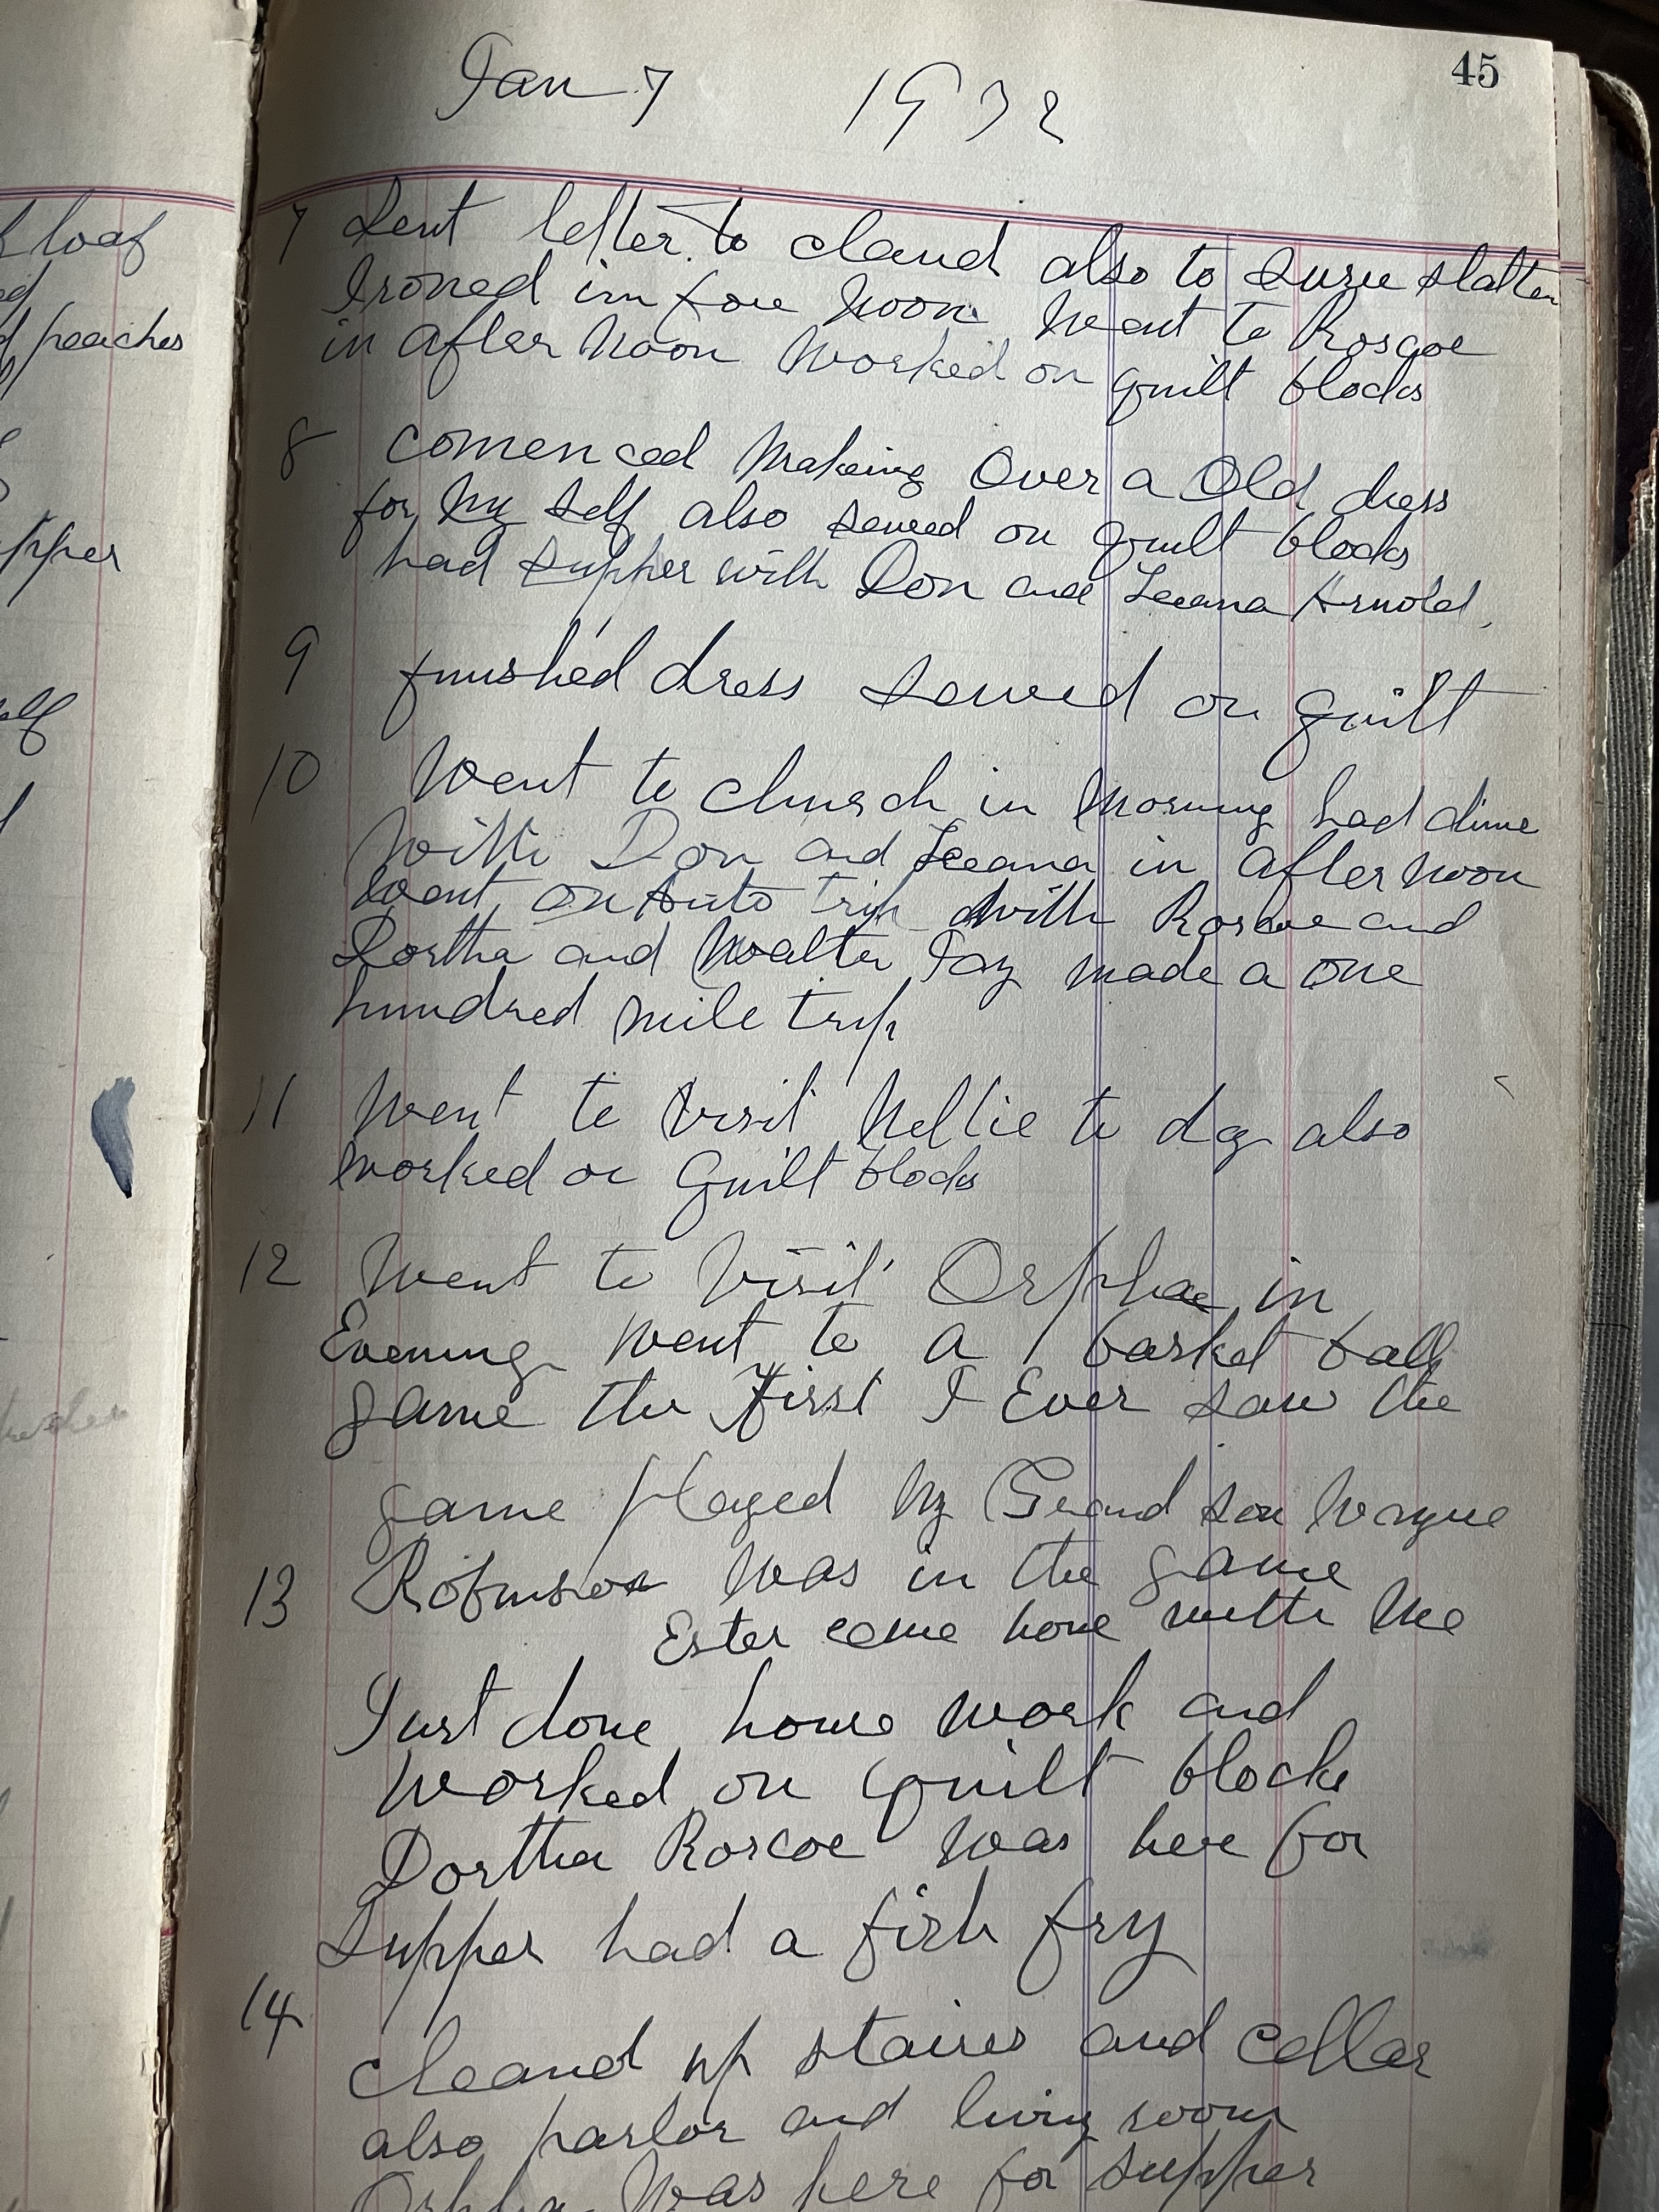 f loaf
peaches
pper
elf
45
Jan 7 1932
7 Sent letter to Claud also to Susie Slatten
Ironed inn fore Noon Went to Roscoe
in after Noon Worked on quilt blocks
8 Comenced Makeing Over a Old dress
for My Self also sewed on quilt blocks
had Supper with Don and Leeana Arnold.
9 finished dress Sewed on quilt
10 Went to Church in Morning had dinne
With Don and Leeana in after noon
Went on Auto trip With Roscoe and
Dortha and Walter Jay made a one
hundred mile trip
11 Went to Visit Nellie to day also
Worked on Quilt blocks
12 Went to Visit Orpha in
Evening Went to a basket ball
game the First I Ever saw the
game played My Grand son Wayne
13 Robinson Was in the game
Ester come home with Me
Just done house work and
Worked on quilt blocks
Dortha Roscoe Was here for
Supper had a fish fry
14
cleand up staires and cellar
also parlor and living room
Orpha Was here for Supper